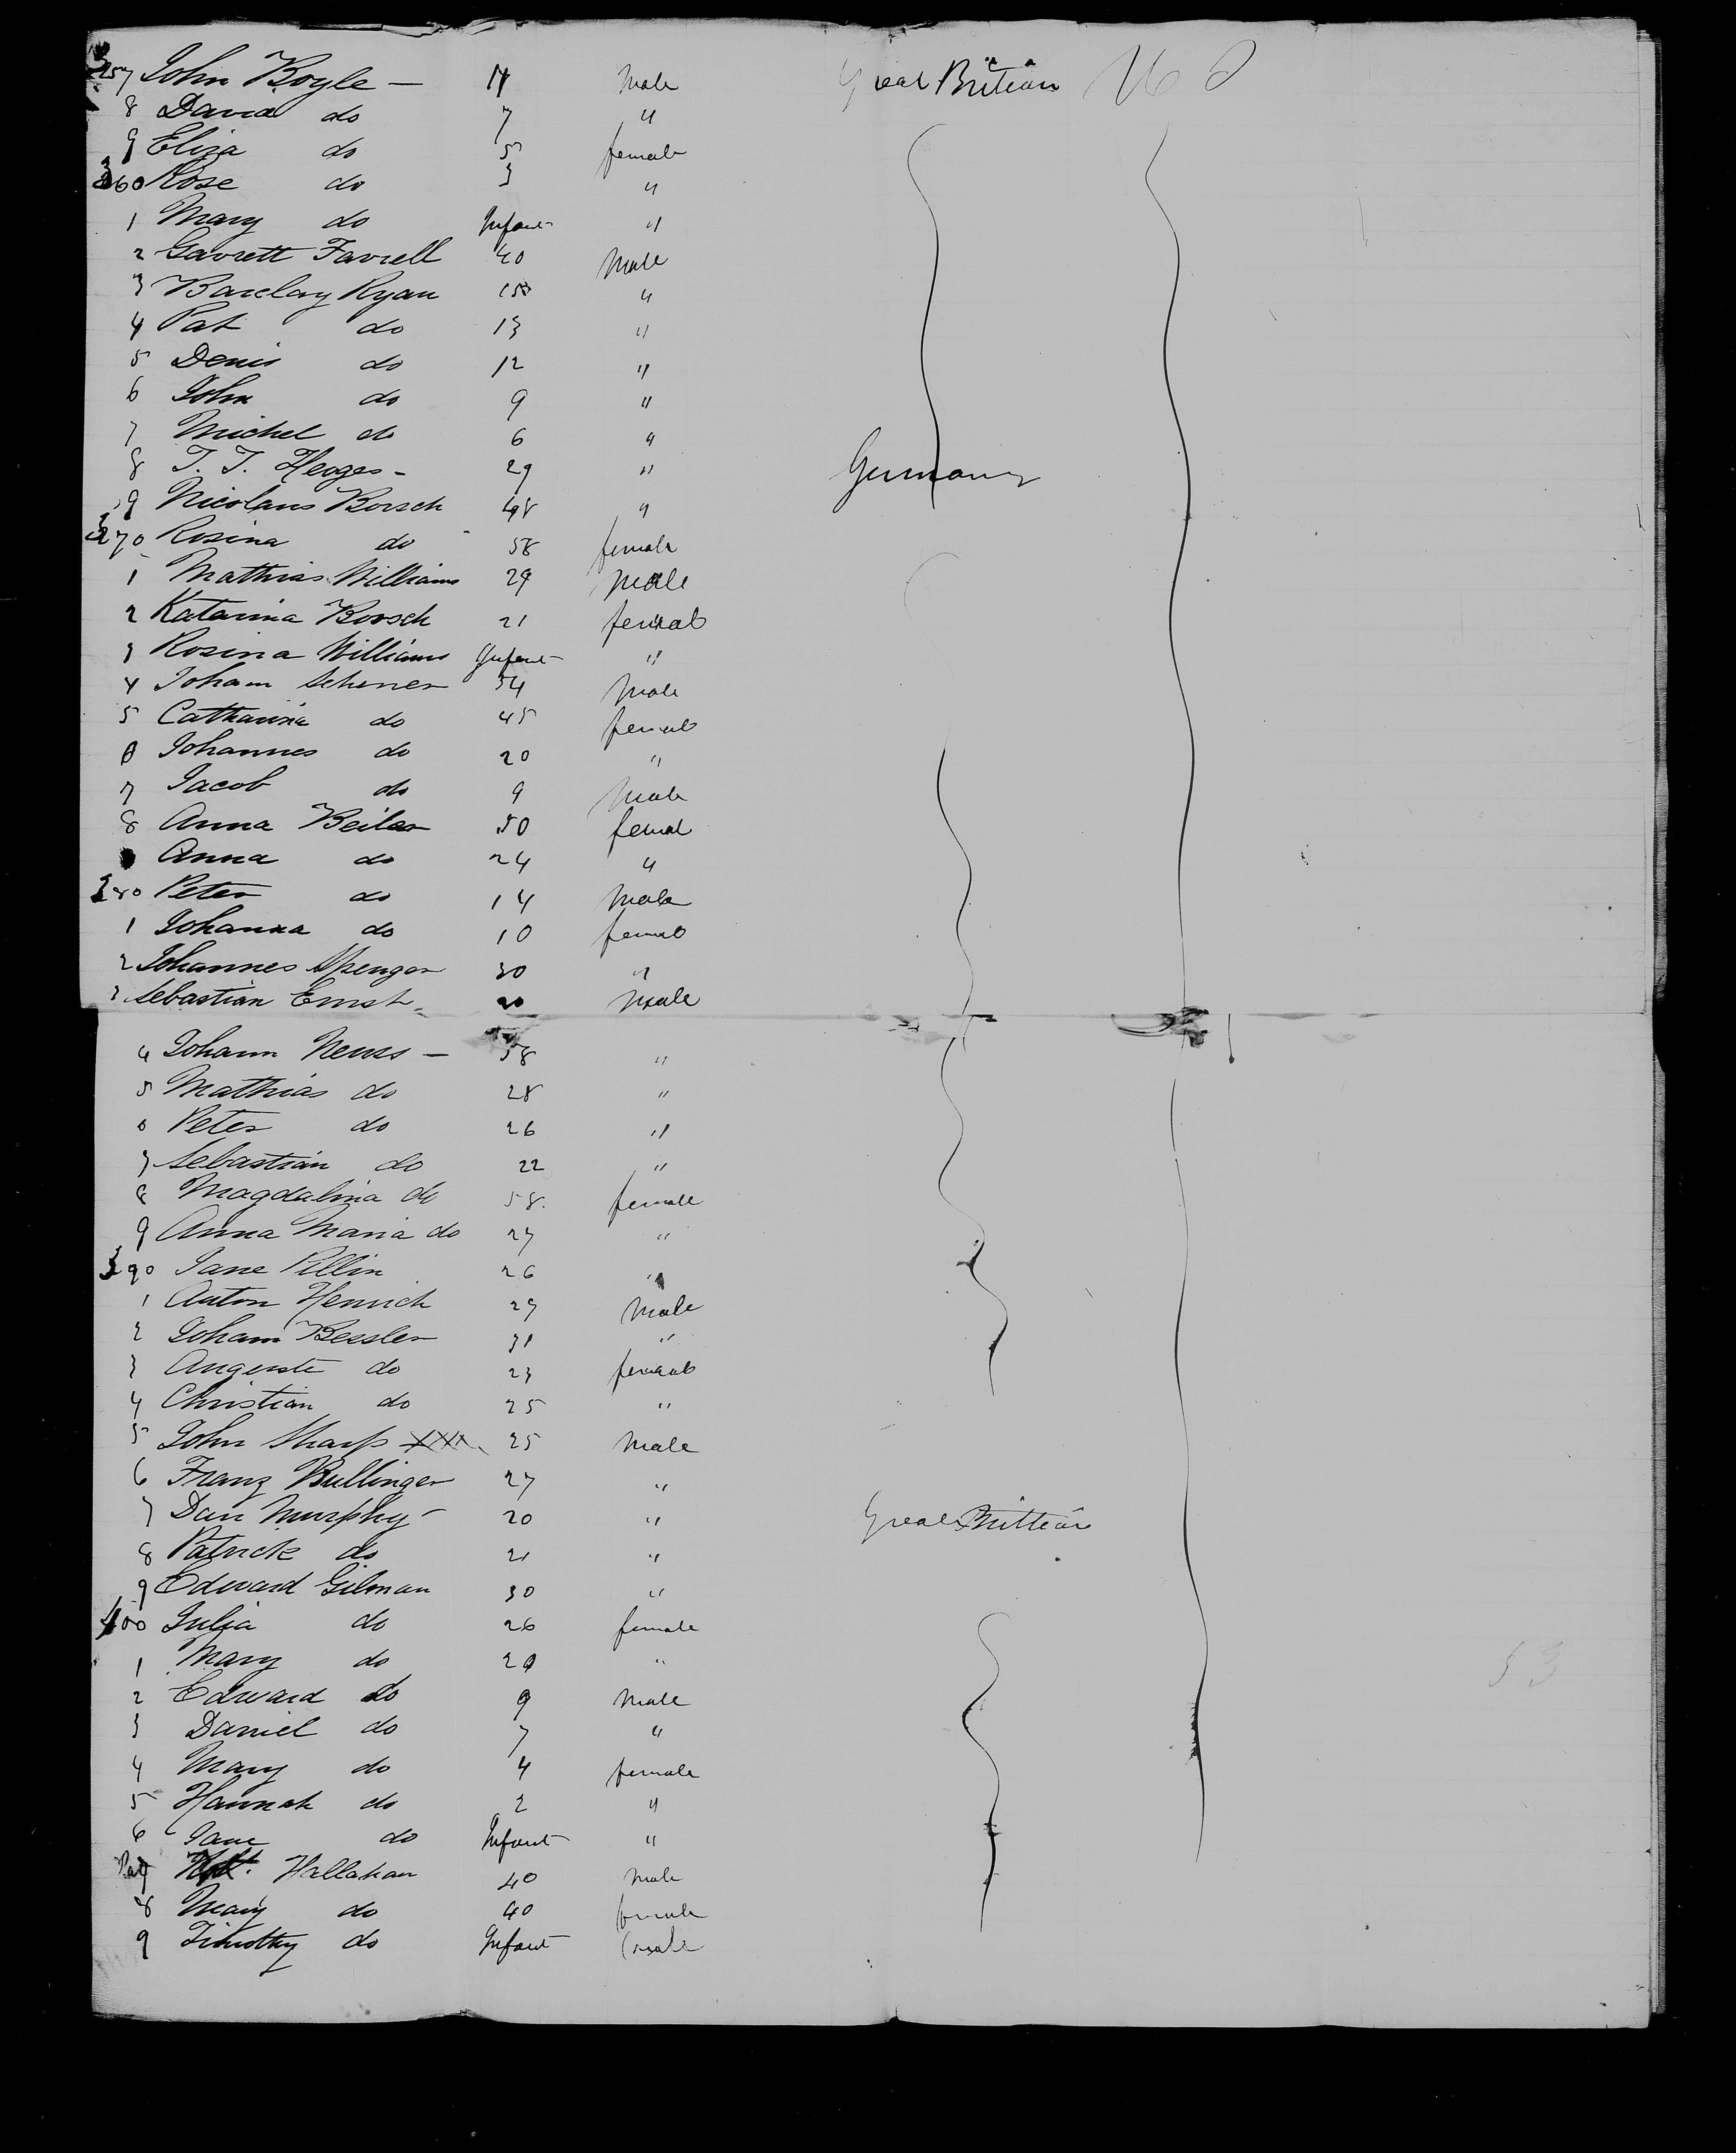 357 John Boyle — 11 Male Great Britian U S
8 David do 7 "
9 Eliza do 5 female
360 Rose do 3 "
1 Mary do Infant "
2 Garrett Farrell 40 Male
3 Barclay Ryan 15 "
4 Pat do 13 "
5 Denis do 12 "
6 John do 9 "
7 Michel do 6 "
8 T. T. Henges - 29 " Germany
9 Nicolaus Borsch 48 "
370 Rosina do 58 female
1 Mathias Williams 29 Male
2 Katarina Borsch 21 female
3 Rosina Williams Infant "
4 Joham Schener 54 Male
5 Catharina do 45 female
6 Johannes do 20 "
7 Jacob do 9 Male
8 Anna Beiler 50 femal
Anna do 24 "
380 Peter do 14 Male
1 Johanna do 10 female
2 Johannes Spenger 30 "
3 Sebastian Ernst 20 Male
4 Johann Neuss — 58 "
5 Mathias do 28 "
6 Peter do 26 "
7 Sebastian do 22 "
8 Magdalina do 58 female
9 Anna Maria do 27 "
390 Jane Pillin 26 "
1 Anton Henrich 29 Male
2 Joham Bessler 31 "
3 Auguste do 23 female
4 Christian do 25 "
5 John Sharp 25 Male
6 Franz Bullinger 27 "
7 Dan Murphy - 20 " Great Brittian
8 Patrick do 21 "
9 Edward Gilman 30 "
400 Julia do 26 female
1 Mary do 20 "
2 Edward do 9 Male
3 Daniel do 7 "
4 Mary do 4 female
5 Hannah do 2 "
6 Jane do Infant "
Pat Hallahan 40 Male
8 Mary do 40 female
9 Timothy do Infant male
53